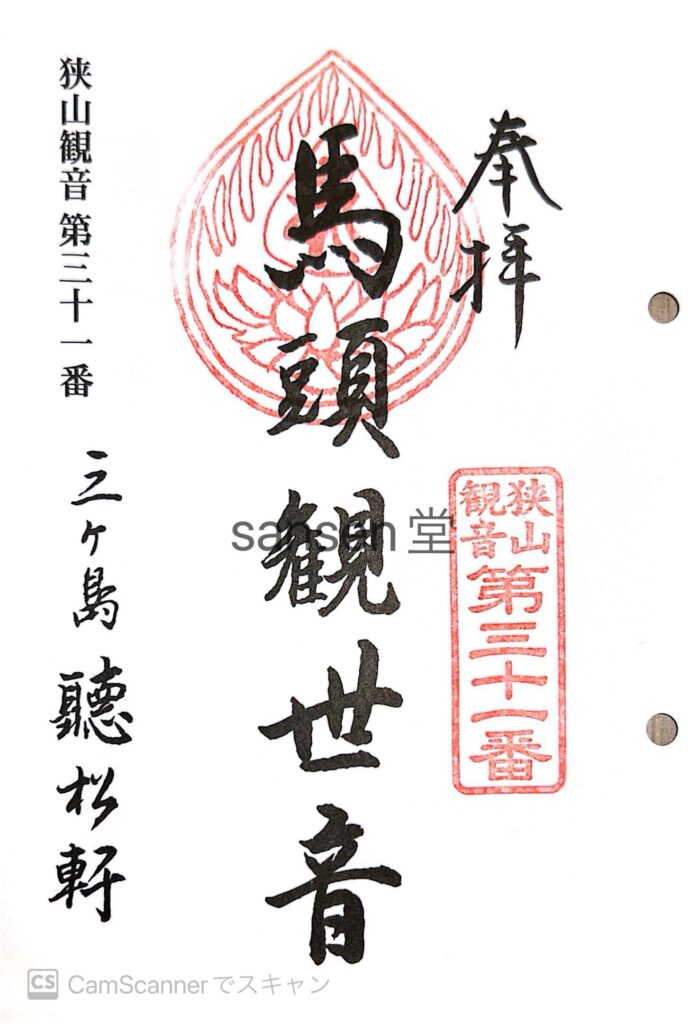 奉拝
狭山
観音
第三十一番
馬頭観世音
狭山観音 第三十一番
三ヶ島 聴松軒
sansen堂
CS CamScannerでスキャン